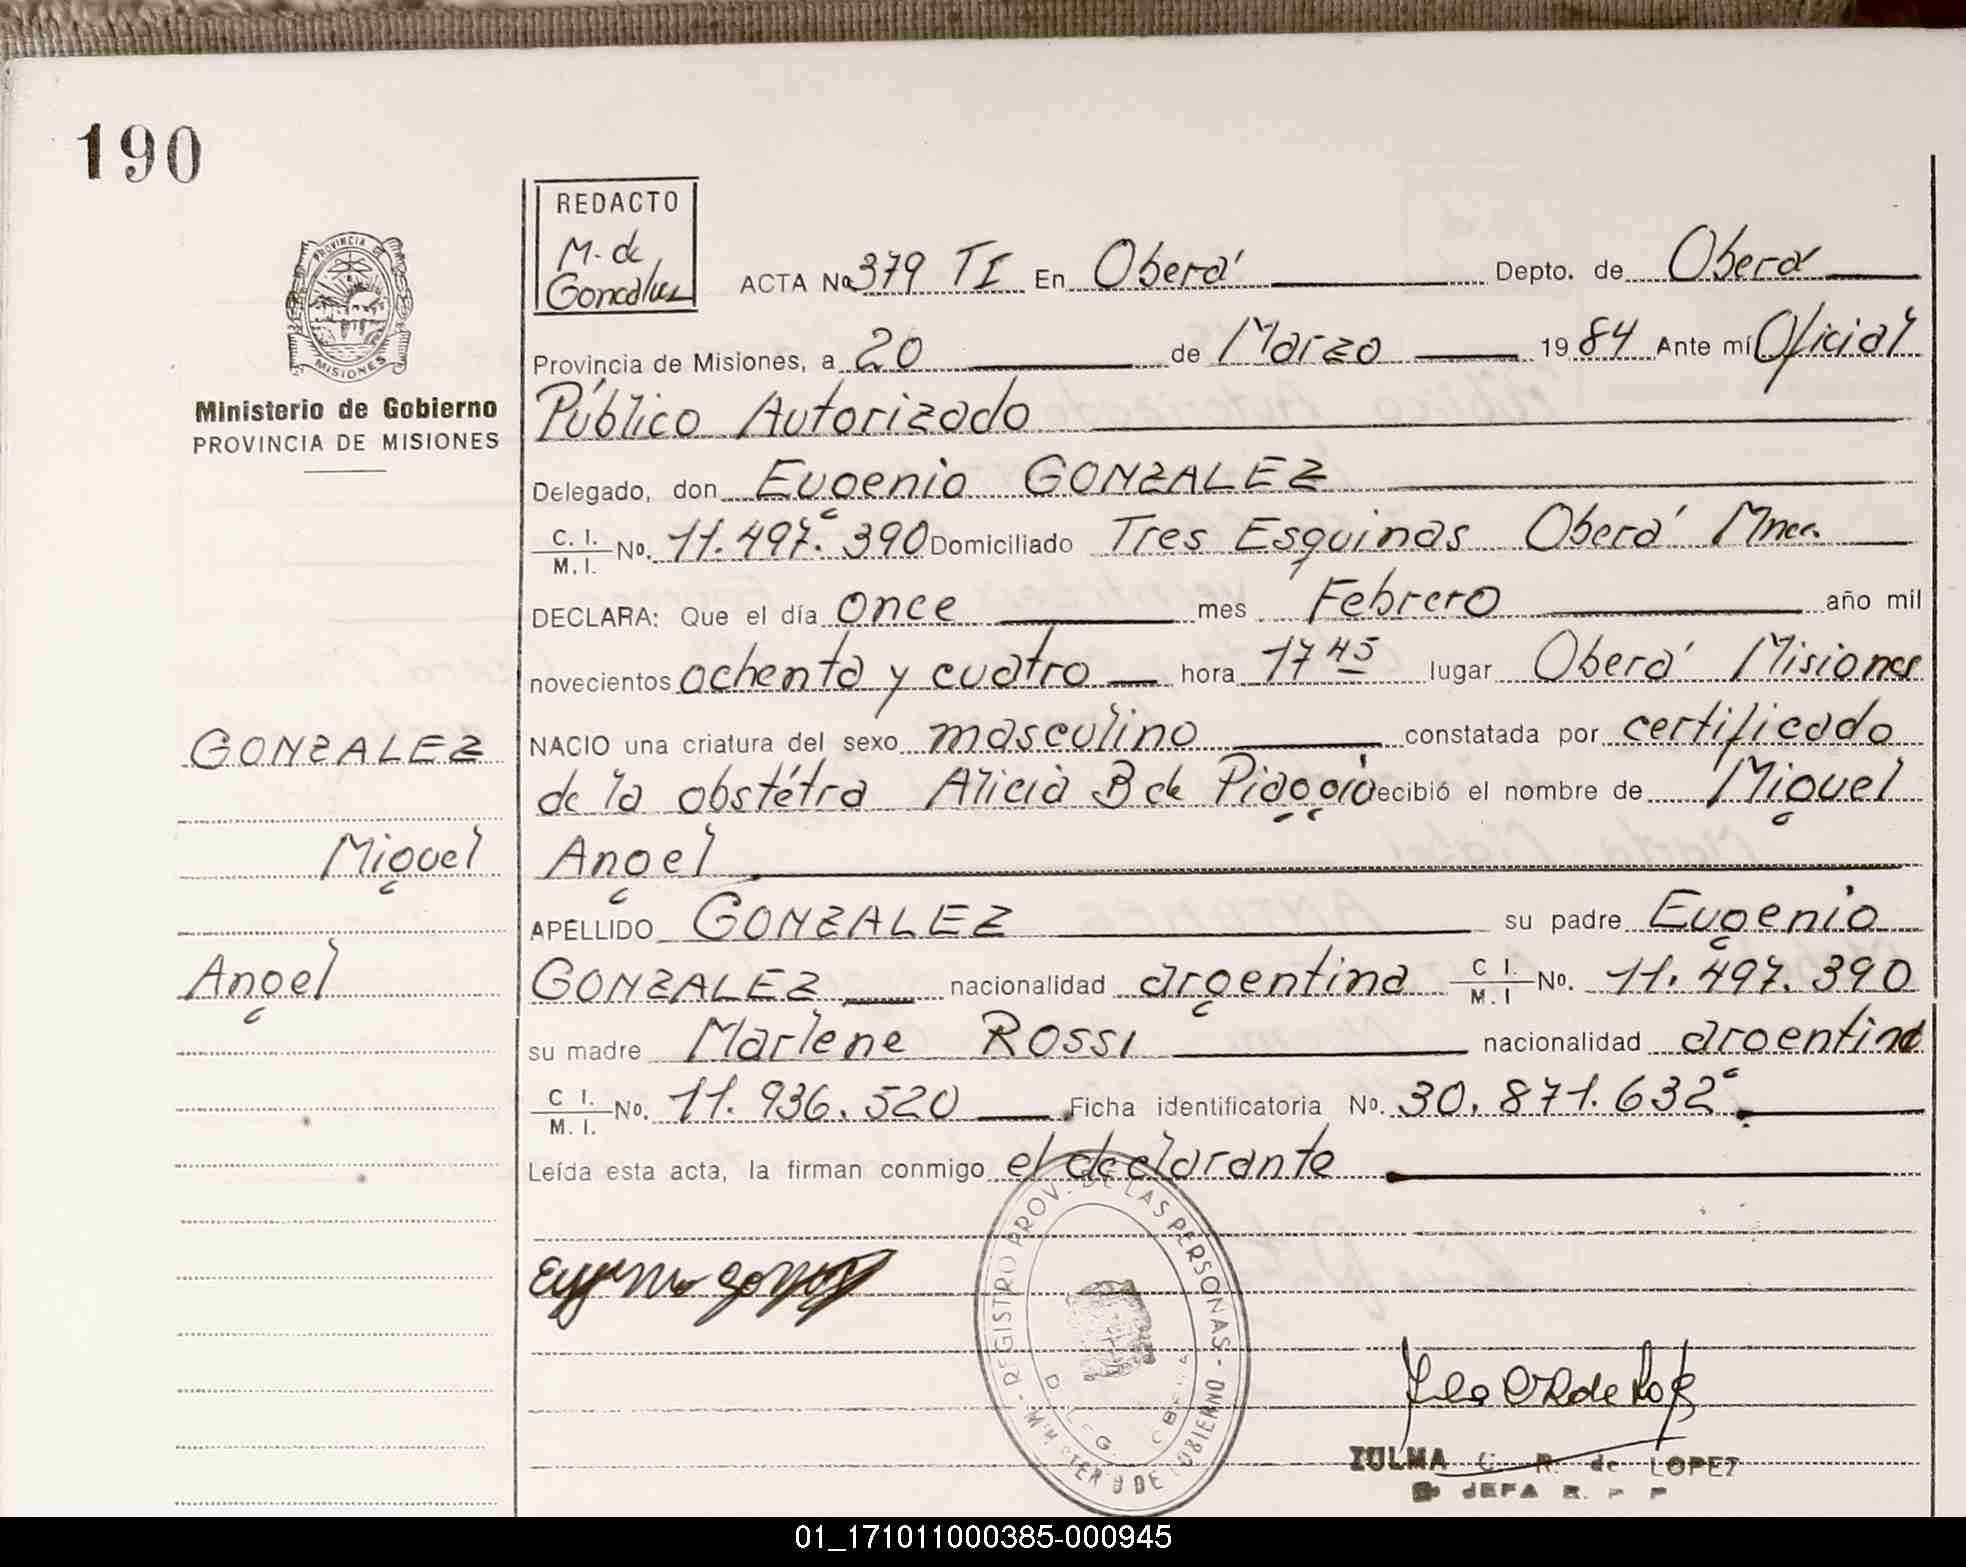 190
REDACTO
M. de
Goncalves
PROVINCIA DE
MISIONES
Ministerio de Gobierno
PROVINCIA DE MISIONES
ACTA No 379 TI En Oberá Depto. de Oberá
Provincia de Misiones, a 20 de Marzo 1984 Ante mí Oficial
Público Autorizado
Delegado, don Eugenio GONZALEZ
C. I. M. I. No. 11.497.390 Domiciliado Tres Esquinas Oberá Mnes.
DECLARA: Que el día once mes Febrero año mil
novecientos ochenta y cuatro hora 17 45 lugar Oberá Misiones
GONZALEZ
NACIO una criatura del sexo masculino constatada por certificado
de la obstétra Alicia B de Piaggio recibió el nombre de Miguel
Miguel
Angel
APELLIDO GONZALEZ su padre Eugenio
Angel
GONZALEZ nacionalidad argentina C I. M. I No. 11.497.390
su madre Marlene ROSSI nacionalidad argentina
C I. M. I. No. 11.936.520 Ficha identificatoria No. 30.871.632
Leída esta acta, la firman conmigo el declarante
REGISTRO PROV. DE LAS PERSONAS - MINISTERIO DE GOBIERNO -
ZULMA C. R. de LOPEZ
JEFA R. P. P
01_171011000385-000945